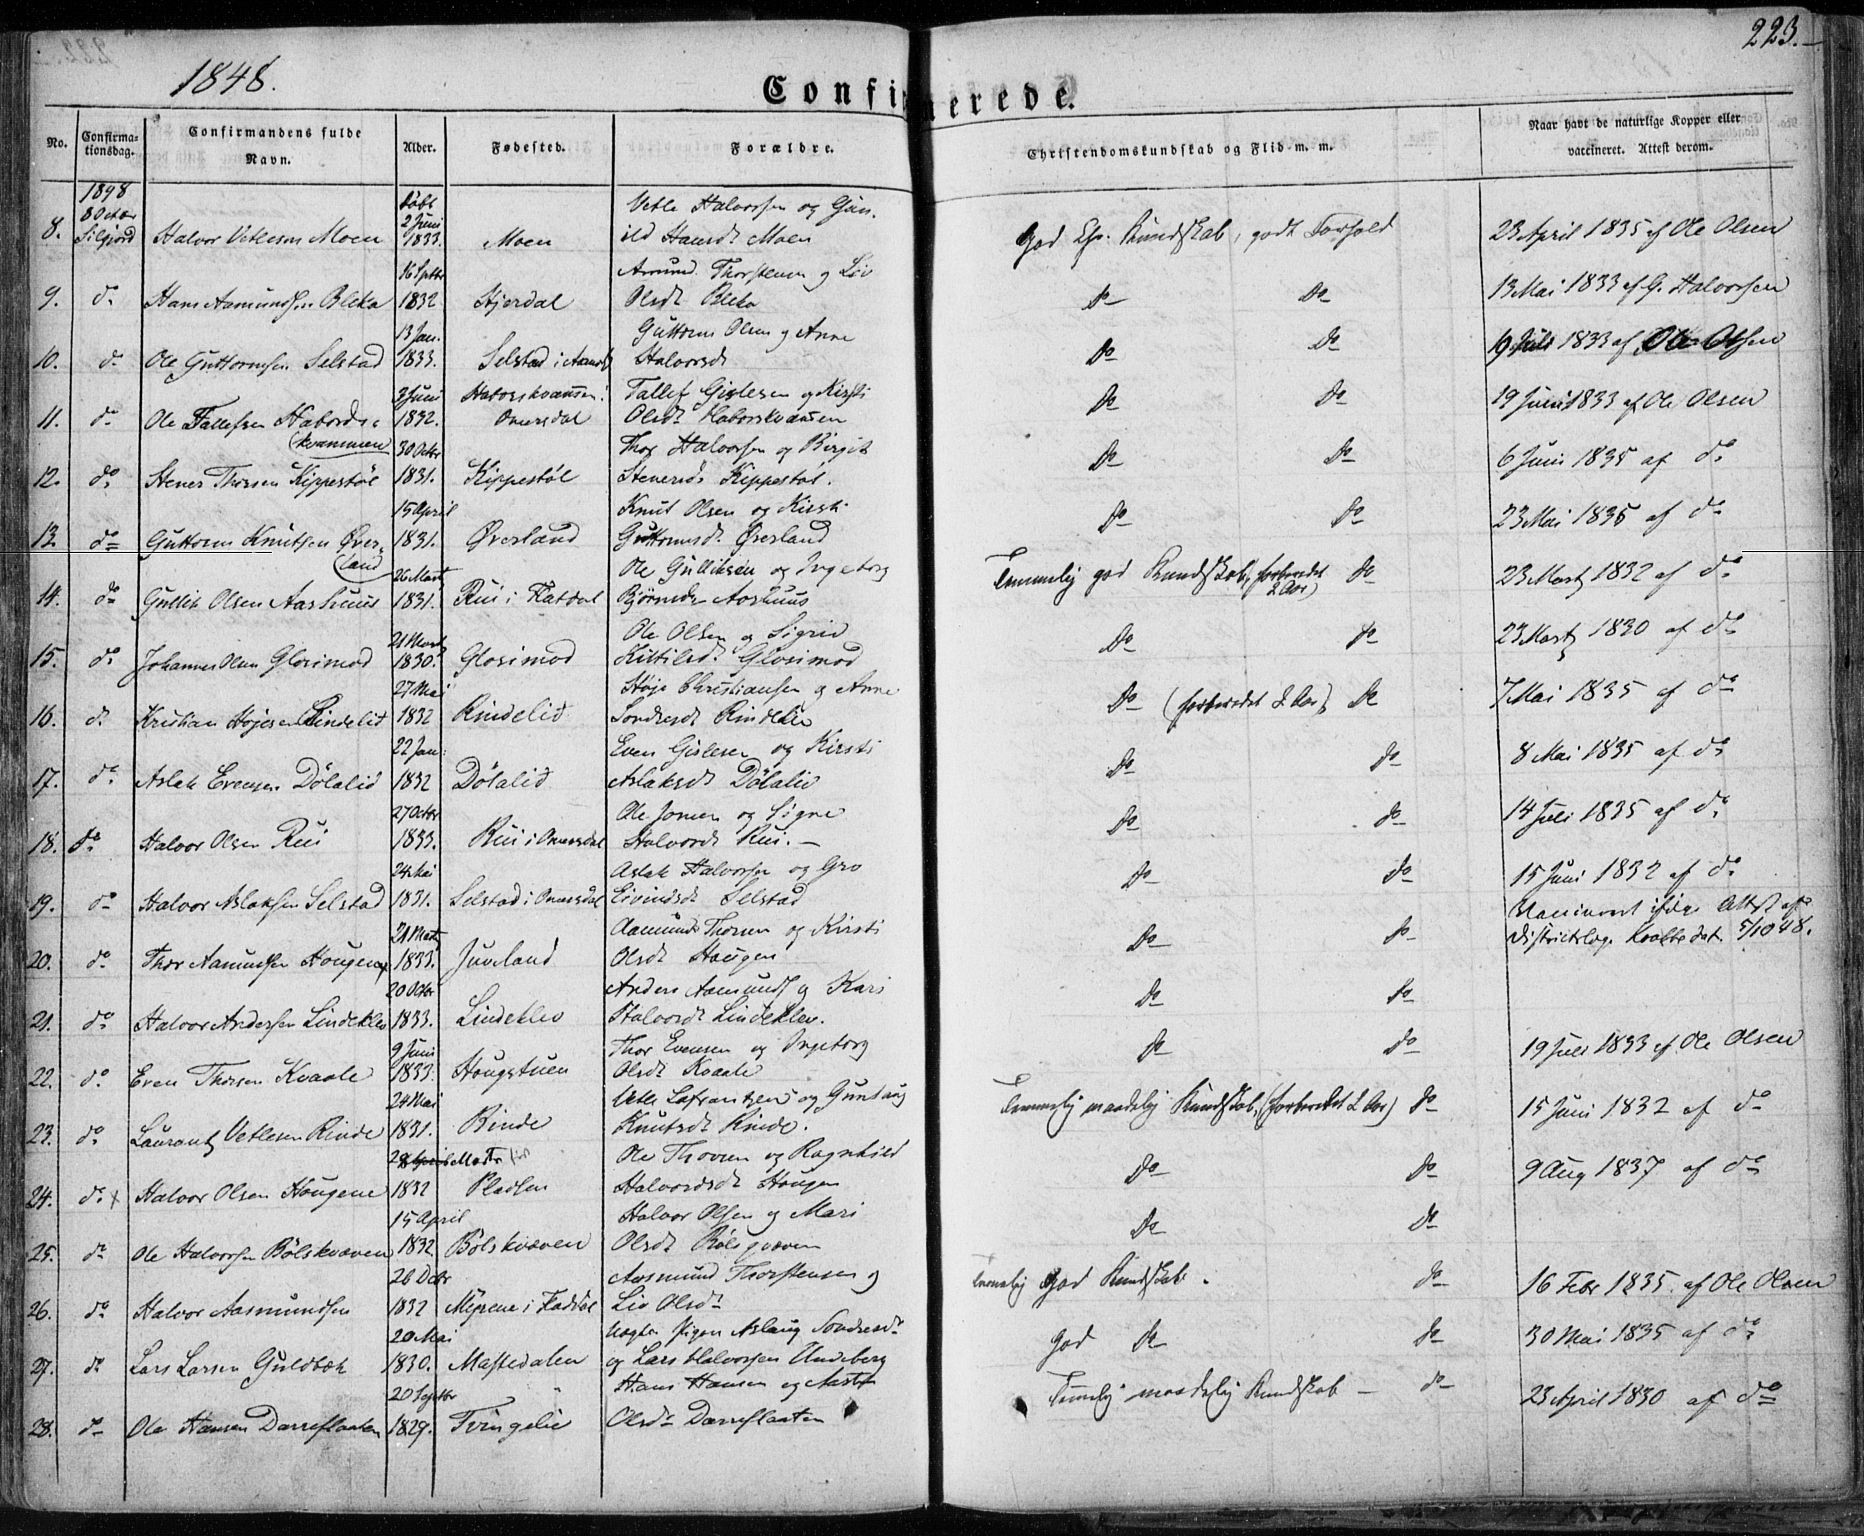 223.
1848.
Confirmerede.
No. Confirmationsdag. Confirmandens fulde Navn. Alder. Fødested. Forældre. Christendomskundskab og Flid m. m. Naar havt de naturlige Kopper eller vaccineret. Attest derom.
1848 døbt Vetle Halvorsen og Gun-
8. 8 Octbr Siljord Halvor Vetlesen Moen 2 Juni 1833. Moen ild Hansdt Moen God Chr. Kundskab, godt Forhold 23 April 1835 af Ole Olsen
16 Septbr Thorstensen og Liv
9. do Hans Aamundsen Bleka 1832 Hjerdal Olsdt Bleka do do 13 Mai 1833 af G. Halvorsen
13 Jan. Guttorm Olsen og Anne
10. do Ole Guttormsen Selstad 1833. Selstad i Halvorsdt do do 19 Juli 1833 af Ole Olsen
3 Juni Tallef Gislesen og Kirsti
11. do Ole Tallefsen Habords- 1832. Omersdal Olsdt do do 19 Juni 1833 af Ole Olsen
kvammen 30 Octbr Thor Halvorsen og Birgit
12. do Stener Thorsen Kippestøl 1831. Kippestøl Stenersdt Kippestøl. do do 6 Juni 1835 af do
15 April Knut Olsen og Kirsti
13. do Guttorm Knutsen Øver- 1831. Øverland Guttormsdt Øverland do do 23 Mai 1835 af do
land 26 Marts Ole Gulliksen og Ingeborg
14. do Gullik Olsen Aashuus 1831. Rui i Flatdal Bjørnsdt Aashuus Temmelig god Kundskab, (forberedet 2 Aar) do 23 Marts 1832 af do
21 Marts Ole Olsen og Sigrid
15. do Johannes Olsen Glosimod 1830. Glosimod Kittilsdt Glosimod do do 23 Marts 1830 af do
27 Mai Høje Christiansen og Anne
16. do Kristian Højesen Rindelid 1832 Rindelid Sondresdt Rindelid do (forberedet 2 Aar), do 7 Mai 1835 af do
22 Jan: Even Gislesen og Kirsti
17. do Aslak Evensen Dølalid 1832 Dølalid Aslaksdt Dølalid do do 8 Mai 1835 af do
27 Octbr Ole Jonsen og Signe
18. do Halvor Olsen Rui 1833. Rui i Omersdal Halvorsdt Rui. — do do 14 Juli 1835 af do
24 Mai Aslak Halvorsen og Gro
19. do Halvor Aslaksen Selstad 1831. Selstad i Omersdal Eivindsdt Selstad do do 15 Juni 1832 af do
21 Marts Aamund Thorsen og Kirsti Vaccineret ifølge Attest af
20. do Thor Aamundsen Hougen 1833. Juveland Olsdt Hougen do do Districtslæge dat. 5/10 48.
20 Octbr Anders Aamunds og Kari
21. do Halvor Andersen Lindeklev 1833. Lindeklev Halvorsdt Lindeklev. do do
9 Juni Thor Evensen og Ingeborg
22. do Even Thorsen Kvaale 1833. Hougstuen Olsdt Kvaale do do 19 Juli 1833 af Ole Olsen
24 Mai Vetle Lafrantsen og Gunlaug
23. do Laurantz Vetlesen Rinde 1831. Rinde Knutsdt Rinde. Temmelig maadelig Kundskab, (forberedet 2 Aar) do 15 Juni 1832 af do
Marts Ole Thovsen og Ragnhild
24. do x Halvor Olsen Hougene 1832 Pladsen Halvorsdt Hougen do do 9 Aug 1837 af do
15 April Halvor Olsen og Mari
25. do Ole Halvorsen Bølskvæven 1832 Bølskvæven Olsdt Bølsqvæven do do
26 Debr Aasmund Thorstensen og
26. do Halvor Aasmundsen 1832 Myrene i Fladdal Liv Olsdt Temmelig God Kundskab. do 16 Febr 1835. af Ole Olsen
20 Mai Uægte. Pigen Aslaug Sondresdt
27. do Lars Larsen Guldbæk 1830. Mastedalen og Lars Halvorsen Undeberg God do do 30 Mai 1835 af do
20 Septbr Hans Hansen og Aaste
28. do Ole Hansen Darreflaaten 1829. Tvingelie Olsdt Darreflaaten Temmelig maadelig Kundskab — do 23 April 1830 af do